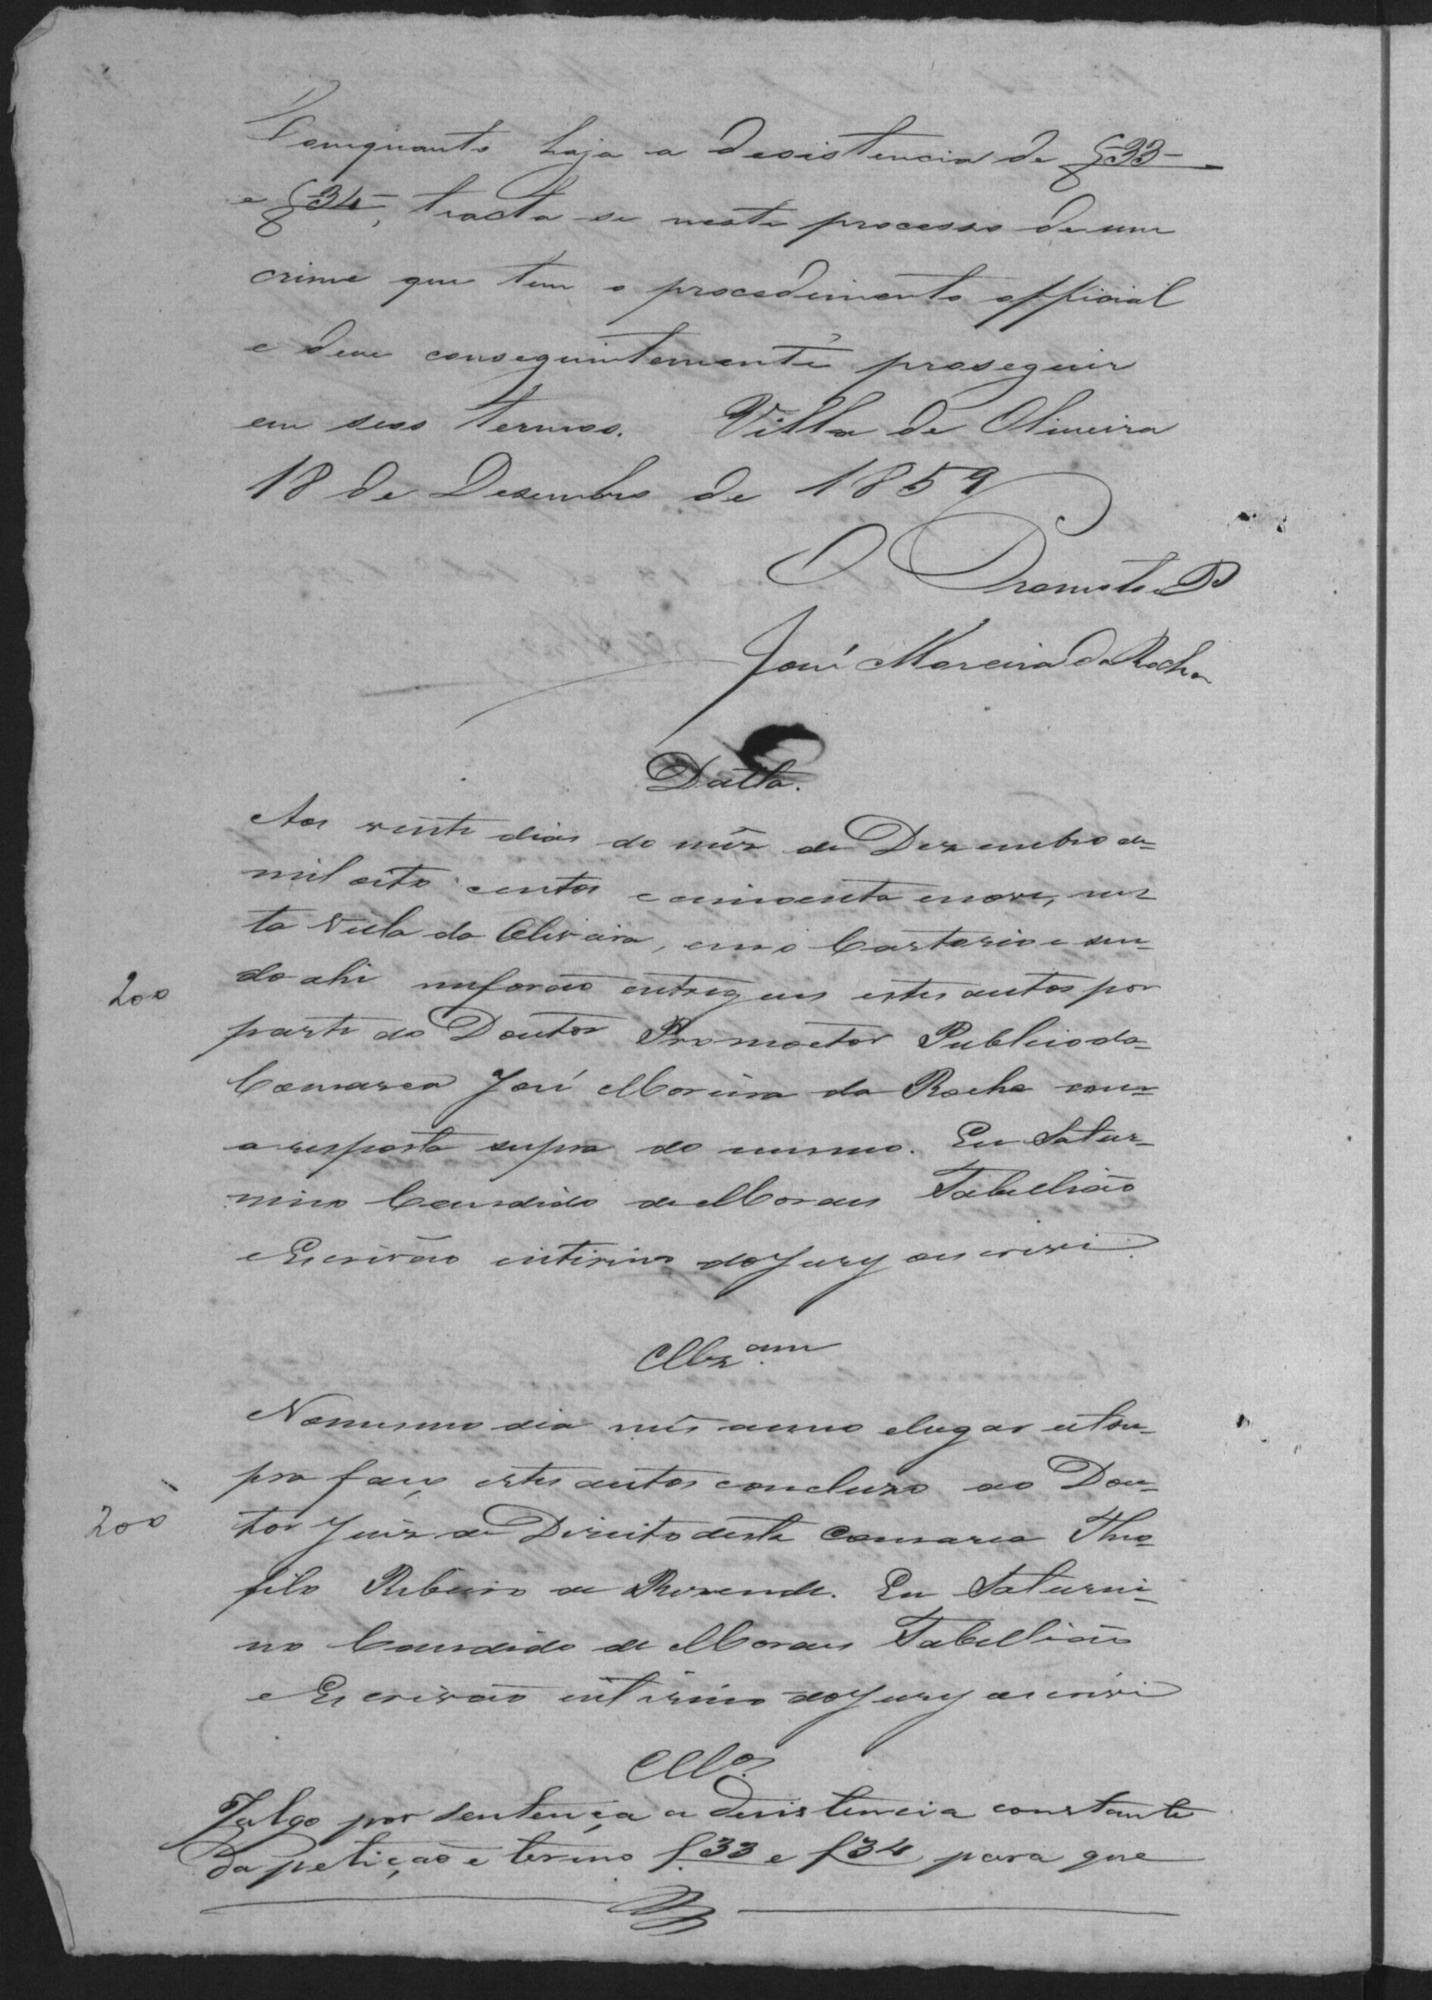 Comquanto haja a desistencia de f 33
e f 34, tracta se neste processo de um
crime que tem o procedimento official
e deve conseguintemente proseguir
em seos termos. Villa de Oliveira
18 de Desembro de 1859
O Promotor P
José Moreira da Rocha
Datta.
Aos vinte dias do mêz de Dezembro de
mil oito centos e cincoenta e nove, nes
ta Villa da Oliveira, em o Cartorio e sen-
do ahi me forão entregues estes autos por
200
parte do Doutor Promoctor Publico da
Comarca José Moreira da Rocha com
a resposta supra do mesmo. Eu Satur-
nino Candido de Moraes Tabellião
e Escrivão interino do Jury o escrevi.
Clz.am
No mesmo dia mês anno e lugar ut su-
pra faço estes autos concluzo ao Dou-
200
tor Juiz de Direito desta Comarca Theo-
filo Ribeiro de Rezende. Eu Saturni-
no Candido de Moraes Tabellião
e Escrivão interino do Jury o escrevi
Cllos.
Julgo por sentença a desistencia constante
da petição e termo f. 33 e f 34, para que